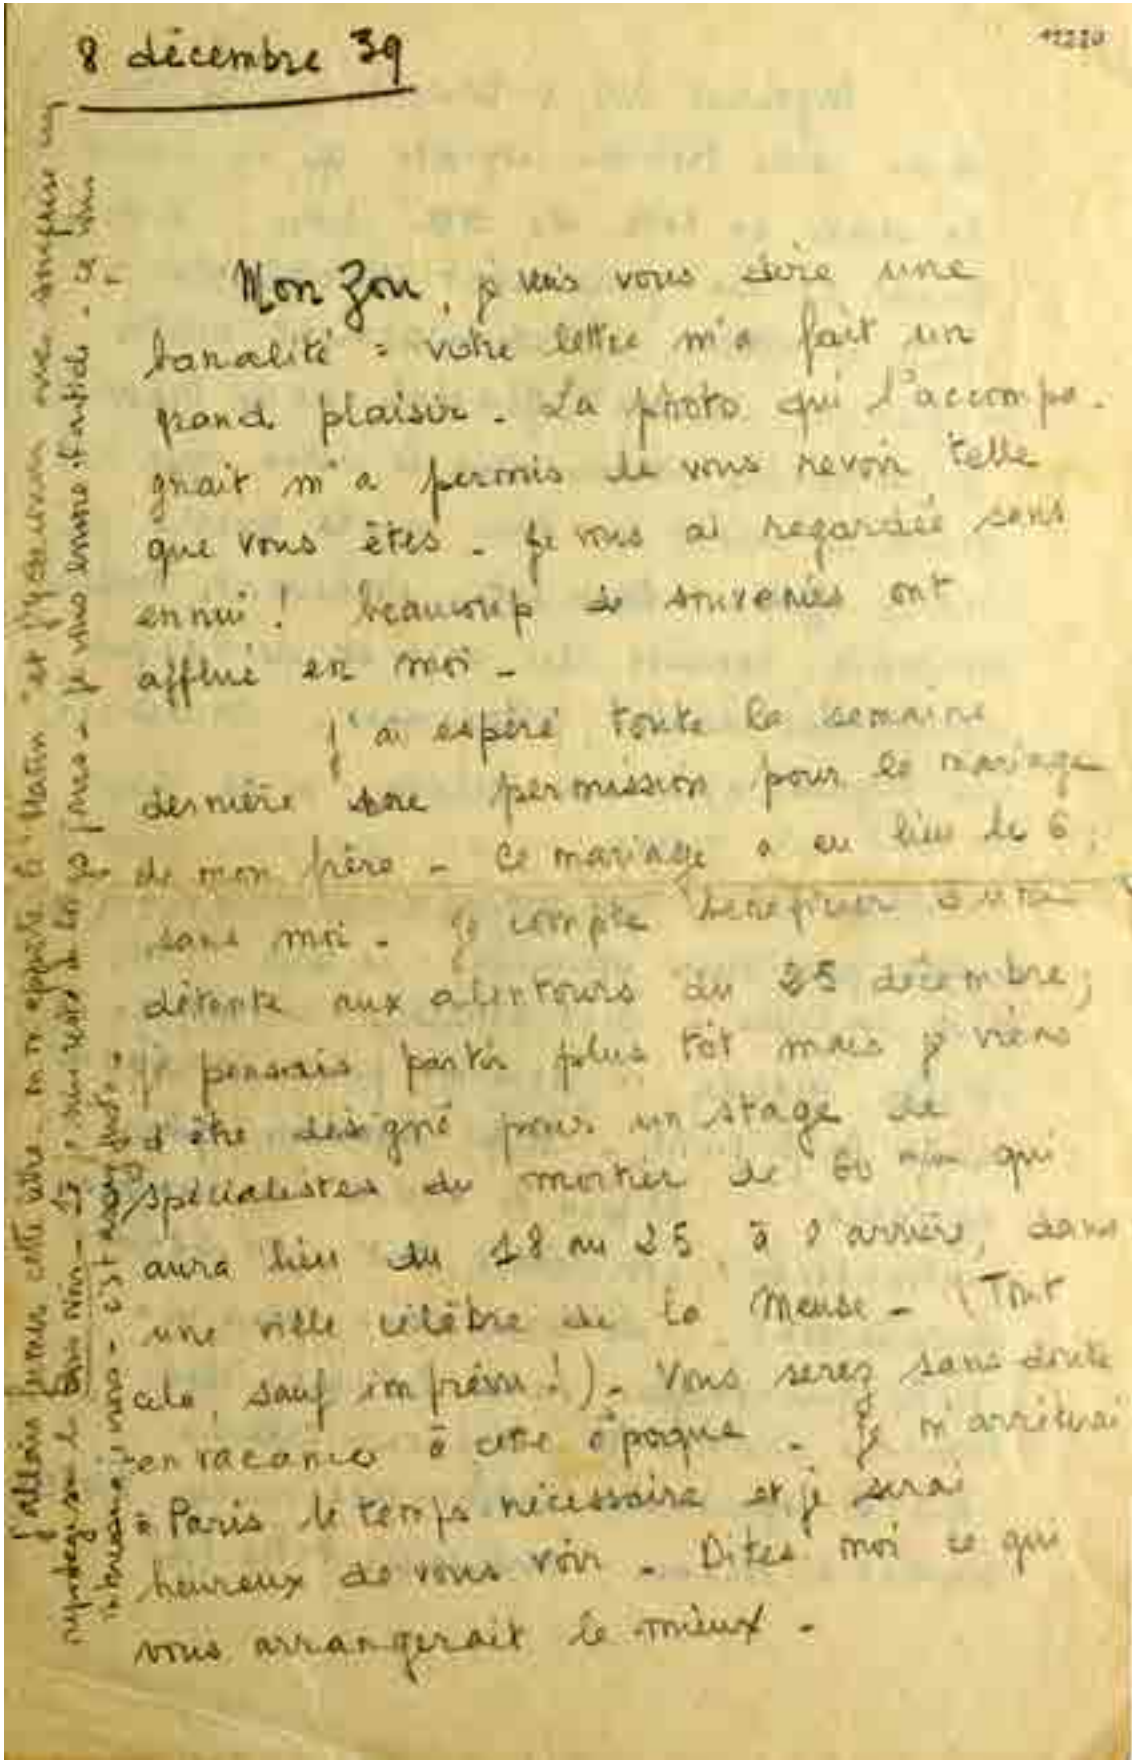 8 décembre 39
12220
Mon Zou, je vais vous dire une
banalité : votre lettre m'a fait un
grand plaisir - La photo qui l'accompa-
gnait m'a permis de vous revoir telle
que vous êtes - Je vous ai regardée sans
ennui ! beaucoup de souvenirs ont
afflué en moi -
J'ai espéré toute la semaine
dernière une permission pour le mariage
de mon frère - Ce mariage a eu lieu le 6,
sans moi - Je compte bénéficier d'une
détente aux alentours du 25 décembre,
je pensais partir plus tôt mais je viens
d'être désigné pour un stage de
spécialistes du mortier de 60 mm qui
aura lieu du 18 au 25, à l'arrière, dans
une ville célèbre de la Meuse - (Tout
cela, sauf imprévu !) - Vous serez sans doute
en vacances à cette époque - Je m'arrêterai
à Paris le temps nécessaire et je serai
heureux de vous voir - Dites moi ce qui
vous arrangerait le mieux -
J'allais fermer cette lettre - on m'apporte le "Matin" et j'y
sur le je vous envoie l'article - ce
intéressera - est